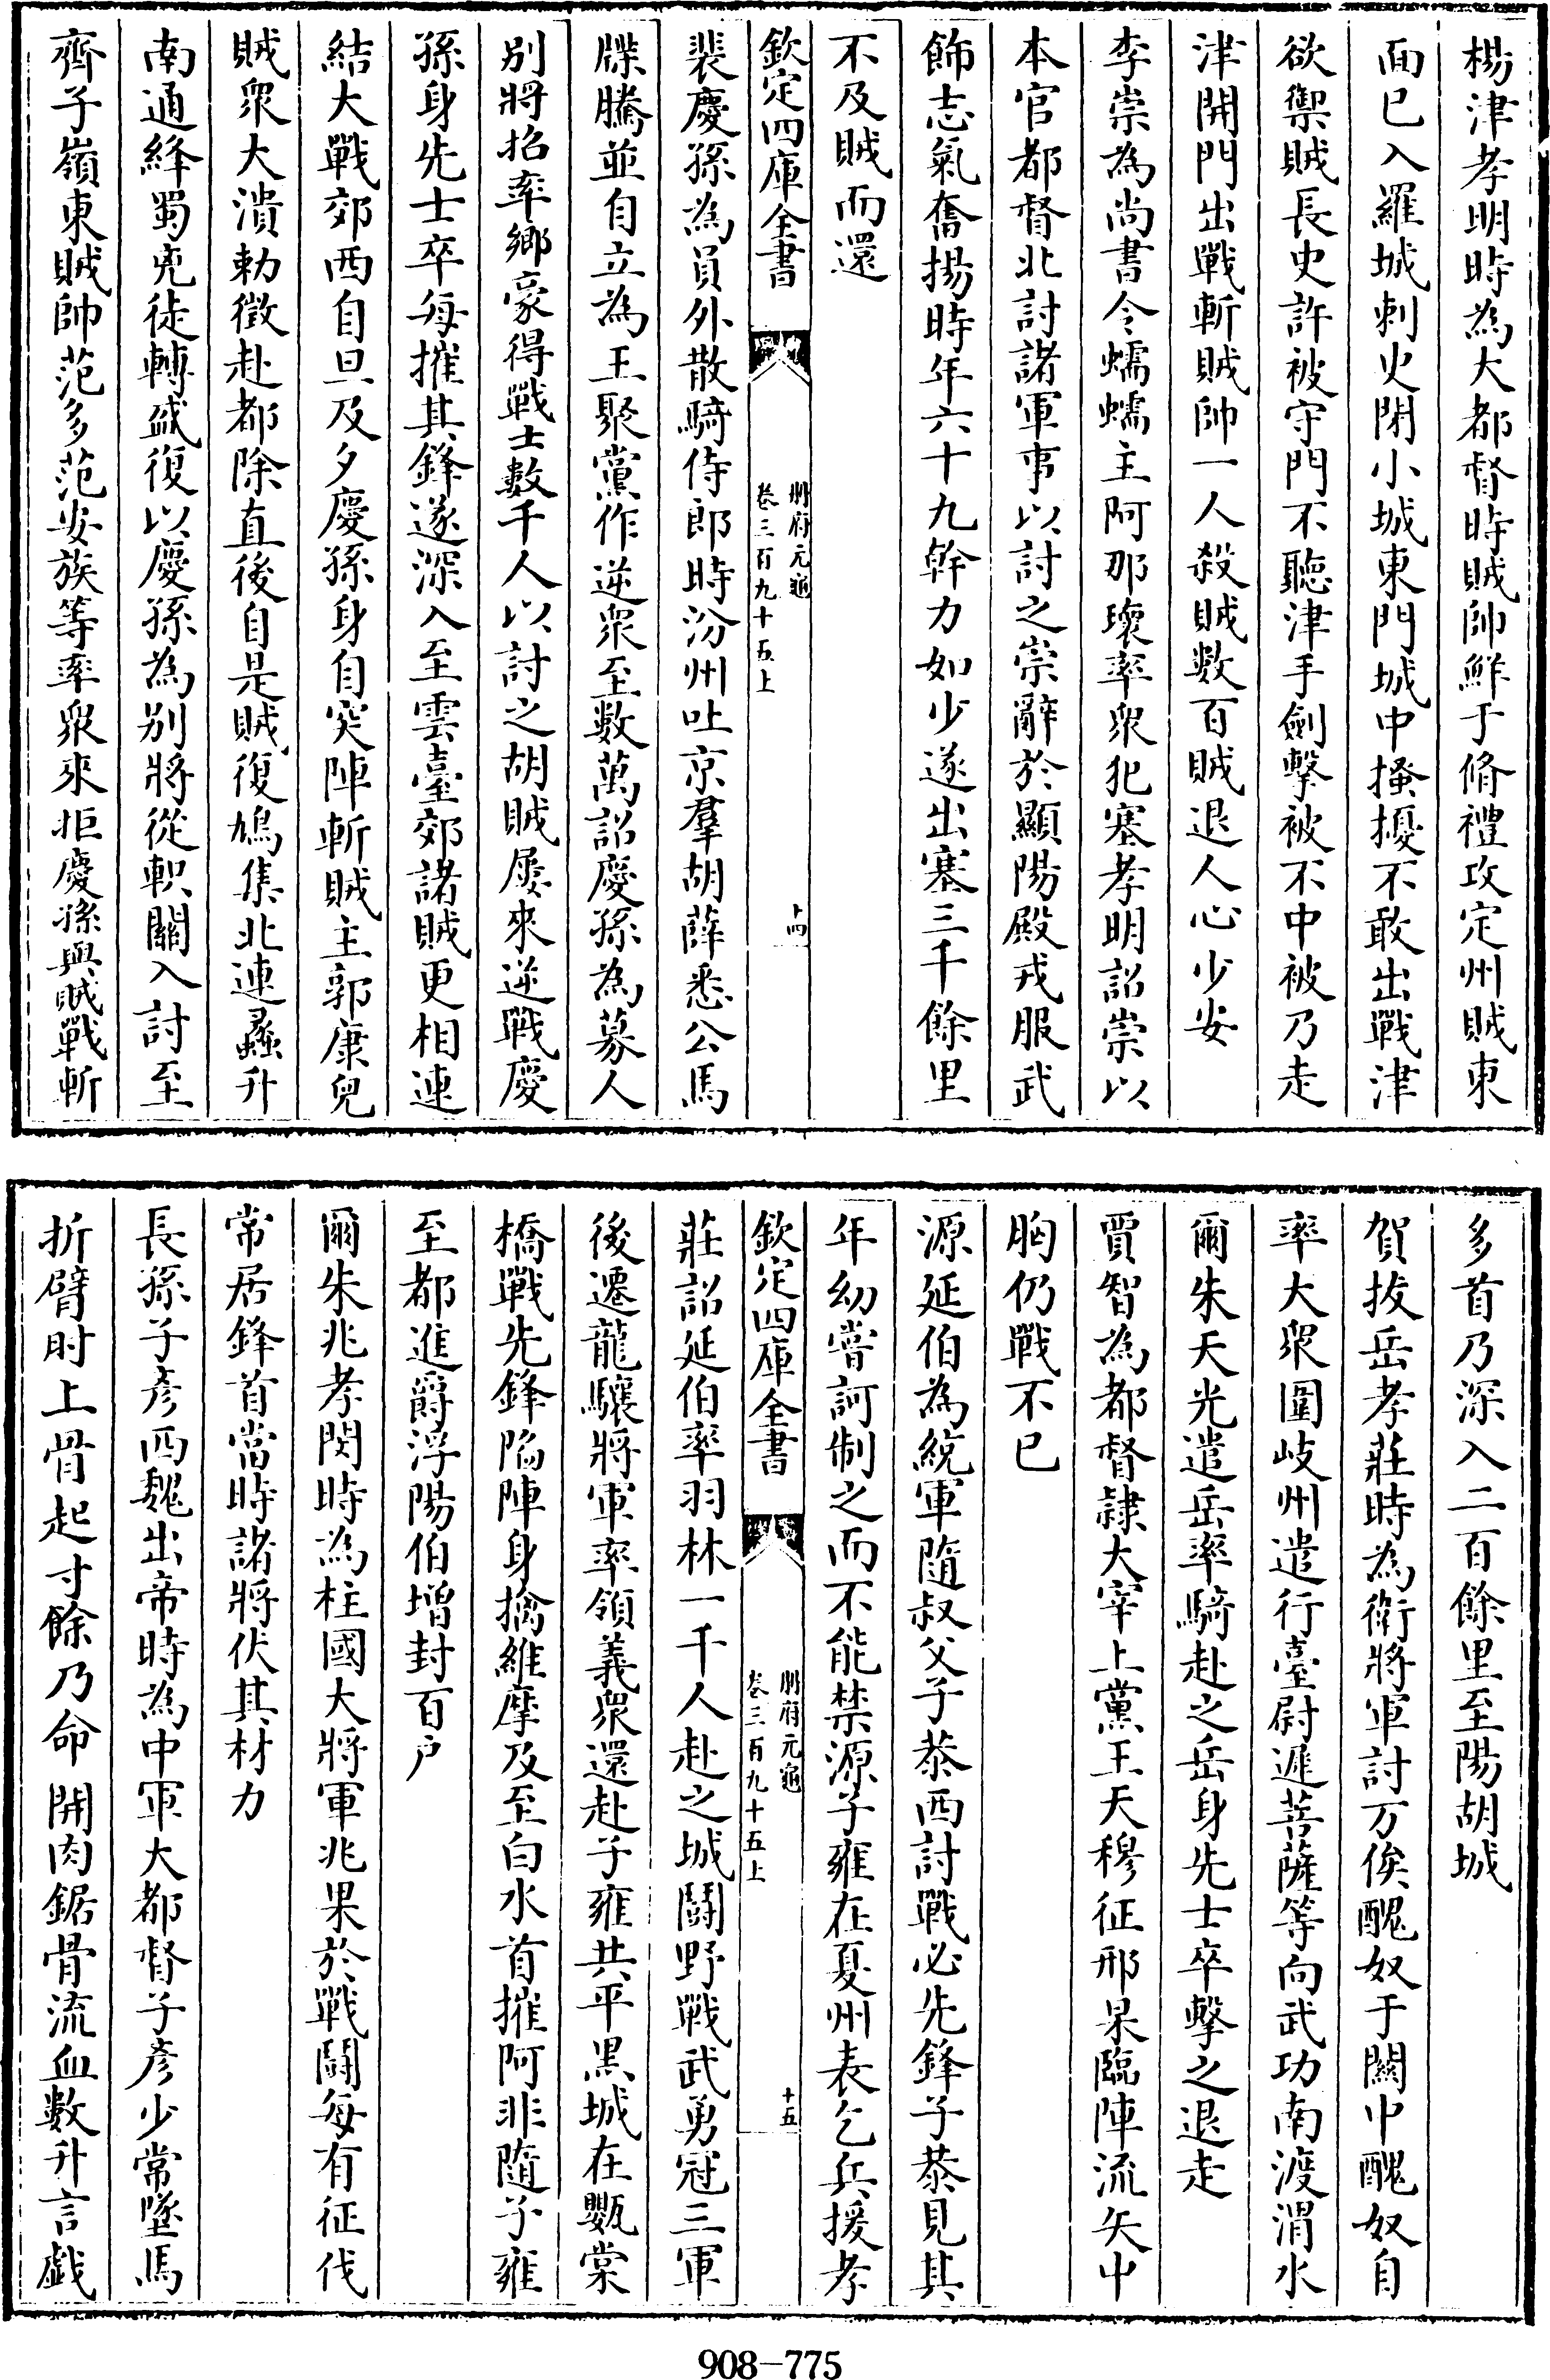 楊津孝明時為大都督時賊帥鮮于脩禮攻定州賊東
面已入羅城刺史閉小城東門城中搔擾不敢出戰津
欲禦賊長史許被守門不聽津手劍擊被不中被乃走
津開門出戰斬賊帥一人殺賊數百賊退人心少安
李崇為尚書令蠕蠕主阿那瓌率眾犯塞孝明詔崇以
本官都督北討諸軍事以討之崇辭於顯陽殿戎服武
飾志氣奮揚時年六十九幹力如少遂出塞三千餘里
不及賊而還
欽定四庫全書
冊府元龜
卷三百九十五上
十四
裴慶孫為員外散騎侍郎時汾州吐京羣胡薛悉公馬
牒騰並自立為王聚黨作逆眾至數萬詔慶孫為募人
別將招率鄉豪得戰士數千人以討之胡賊屢來逆戰慶
孫身先士卒每摧其鋒遂深入至雲臺郊諸賊更相連
結大戰郊西自旦及夕慶孫身自突陣斬賊主郭康兒
賊眾大潰勅徵赴都除直後自是賊復鳩集北連蠡升
南通絳蜀兇徒轉盛復以慶孫為別將從軹關入討至
齊子嶺東賊帥范多范安族等率眾來拒慶孫與賊戰斬
多首乃深入二百餘里至陽胡城
賀拔岳孝莊時為衛將軍討万俟醜奴于關中醜奴自
率大眾圍岐州遣行臺尉遲菩薩等向武功南渡渭水
爾朱天光遣岳率騎赴之岳身先士卒擊之退走
賈智為都督隷大宰上黨王天穆征邢杲臨陣流矢中
胸仍戰不已
源延伯為統軍隨叔父子恭西討戰必先鋒子恭見其
年幼嘗訶制之而不能禁源子雍在夏州表乞兵援孝
欽定四庫全書
冊府元龜
卷三百九十五上
十五
莊詔延伯率羽林一千人赴之城鬬野戰武勇冠三軍
後遷龍驤將軍率領義眾還赴子雍共平黑城在鸚棠
橋戰先鋒陷陣身擒維摩及至白水首摧阿非隨子雍
至都進爵浮陽伯增封百戶
爾朱兆孝閔時為柱國大將軍兆果於戰鬬每有征伐
常居鋒首當時諸將伏其材力
長孫子彥西魏出帝時為中軍大都督子彥少常墜馬
折臂肘上骨起寸餘乃命開肉鋸骨流血數升言戲
908-775